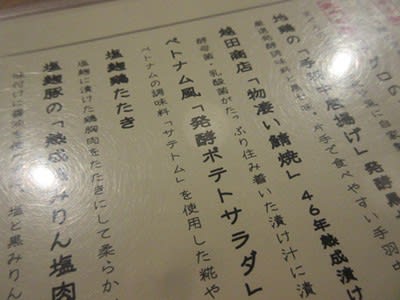 気に自家
地鶏の「手羽中唐揚げ」発酵黒
厳選発酵調味料 片手で食べやすい手羽中
越田商店「物凄い鯖焼」46年熟成漬け
酵母菌・乳酸菌がたっぷり住み着いた漬け汁に漬
ベトナム風「発酵ポテトサラダ」
ベトナムの調味料「サテトム」を使用した糀や
塩麹鶏たたき
塩麹に漬けた鶏胸肉をたたきにして柔らか
塩麹豚の「熟成みりん塩肉
塩と黒みりん